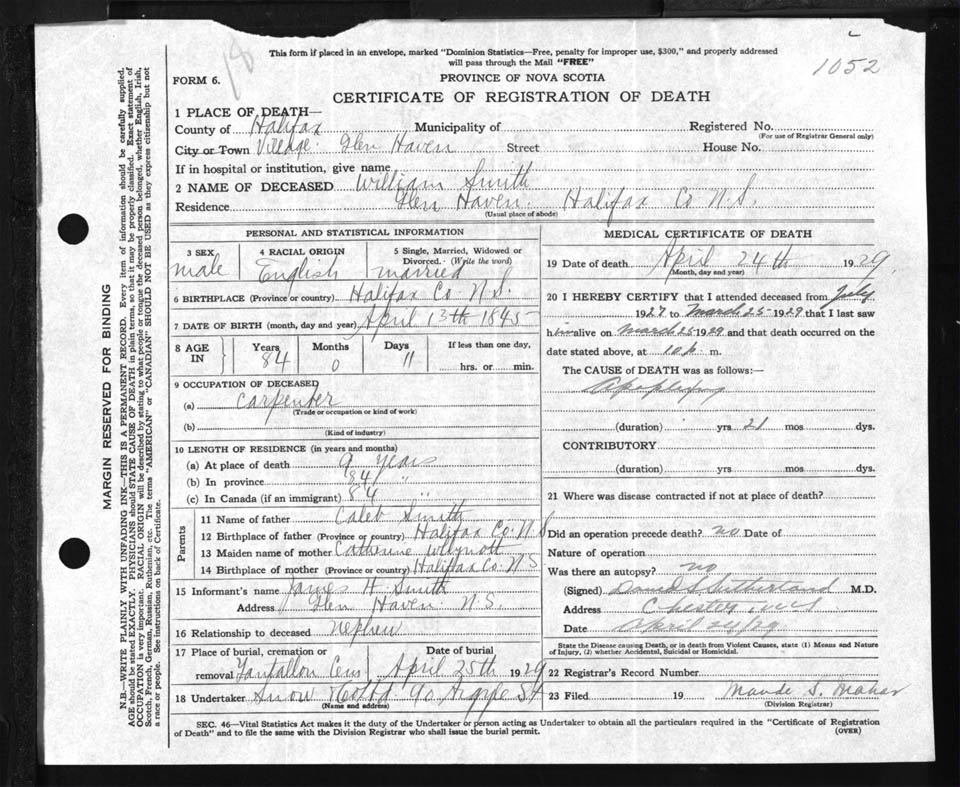 18
This form if placed in an envelope, marked "Dominion Statistics—Free, penalty for improper use, $300," and properly addressed
will pass through the Mail "FREE"
1052
FORM 6.
PROVINCE OF NOVA SCOTIA
CERTIFICATE OF REGISTRATION OF DEATH
1 PLACE OF DEATH—
County of Halifax Municipality of Registered No.
(For use of Registrar General only)
City or Town Village Glen Haven Street House No.
If in hospital or institution, give name
2 NAME OF DECEASED William Smith
Residence Glen Haven Halifax Co N.S.
(Usual place of abode)
PERSONAL AND STATISTICAL INFORMATION
3 SEX male
4 RACIAL ORIGIN English
5 Single, Married, Widowed or
Divorced. (Write the word)
married
6 BIRTHPLACE (Province or country) Halifax Co N.S.
7 DATE OF BIRTH (month, day and year) April 13th 1845
8 AGE IN Years 84 Months 0 Days 11 If less than one day, hrs. or min.
9 OCCUPATION OF DECEASED
(a) Carpenter
(Trade or occupation or kind of work)
(b)
(Kind of industry)
10 LENGTH OF RESIDENCE (in years and months)
(a) At place of death 9 years
(b) In province 84 "
(c) In Canada (if an immigrant) 84 "
Parents
11 Name of father Caleb Smith
12 Birthplace of father (Province or country) Halifax Co. N.S
13 Maiden name of mother Catherine
14 Birthplace of mother (Province or country) Halifax Co. N.S
15 Informant's name James H Smith
Address Glen Haven N.S.
16 Relationship to deceased nephew
17 Place of burial, cremation or Date of burial
removal Tantallon Cem April 25th 1929
18 Undertaker Snow & Co Ltd 90 Argyle St
(Name and address)
MEDICAL CERTIFICATE OF DEATH
19 Date of death April 24th 1929
(Month, day and year)
20 I HEREBY CERTIFY that I attended deceased from July
1927 to March 25 1929 that I last saw
him alive on March 25 1929 and that death occurred on the
date stated above, at 10 p. m.
The CAUSE of DEATH was as follows:—
Apoplexy
(duration) yrs 21 mos dys.
CONTRIBUTORY
(duration) yrs mos dys.
21 Where was disease contracted if not at place of death?
Did an operation precede death? no Date of
Nature of operation
Was there an autopsy? no
(Signed) Sutherland M.D.
Address Chester
Date April 24/29
State the Disease causing Death, or in death from Violent Causes, state (1) Means and Nature
of Injury, (2) whether Accidental, Suicidal or Homicidal.
22 Registrar's Record Number
23 Filed 19 Maude S. Mahar
(Division Registrar)
SEC. 46—Vital Statistics Act makes it the duty of the Undertaker or person acting as Undertaker to obtain all the particulars required in the "Certificate of Registration
of Death" and to file the same with the Division Registrar who shall issue the burial permit.
(OVER)
MARGIN RESERVED FOR BINDING
N.B.—WRITE PLAINLY WITH UNFADING INK—THIS IS A PERMANENT RECORD. Every item of information should be carefully supplied.
AGE should be stated EXACTLY. PHYSICIANS should STATE CAUSE OF DEATH in plain terms, so that it may be properly classified. Exact statement of
OCCUPATION is very important. RACIAL ORIGIN will be described by stating to what people or tongue the deceased person belonged, whether English, Irish,
Scotch, French, German, Russian, Ruthenian, etc. The terms "AMERICAN" or "CANADIAN" SHOULD NOT BE USED as they express citizenship but not
a race or people. See instructions on back of Certificate.